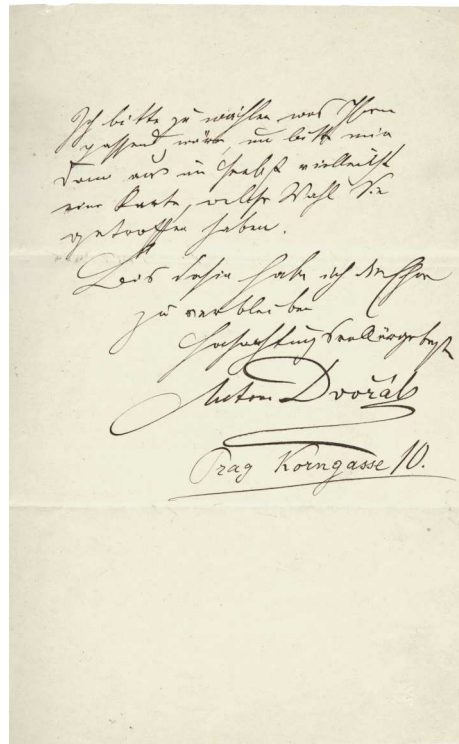 Ich bitte zu wählen was Ihnen
passend wäre, und bitte mir
dann nur im Herbst vielleicht
eine Karte, welche Wahl Sie
getroffen haben.
Bis dahin habe ich die Ehre
zu verbleiben
hochachtungsvoll ergebenst
Anton Dvořák
Prag Korngasse 10.